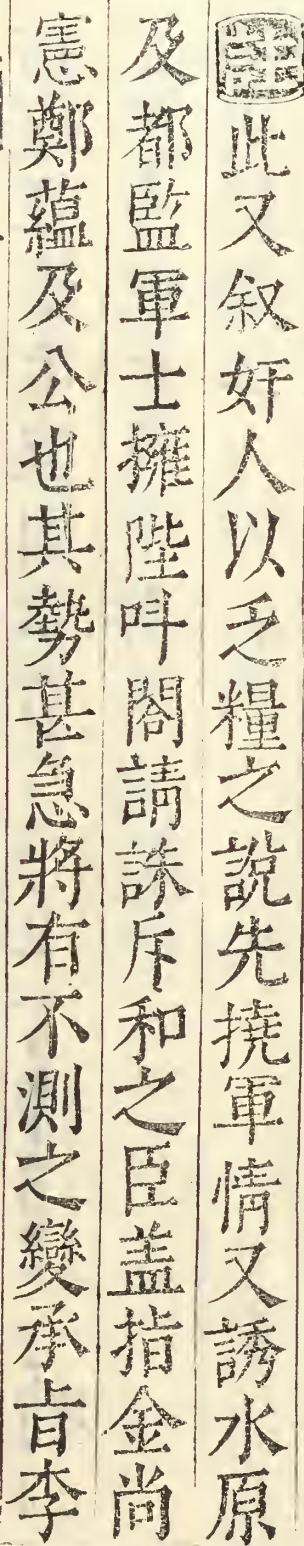 此又叙奸人以乏糧之說先撓軍情又誘水原
及都監軍士擁陛叫閤請誅斥和之臣盖指金尙
憲鄭蘊及公也其勢甚急將有不測之變承旨李